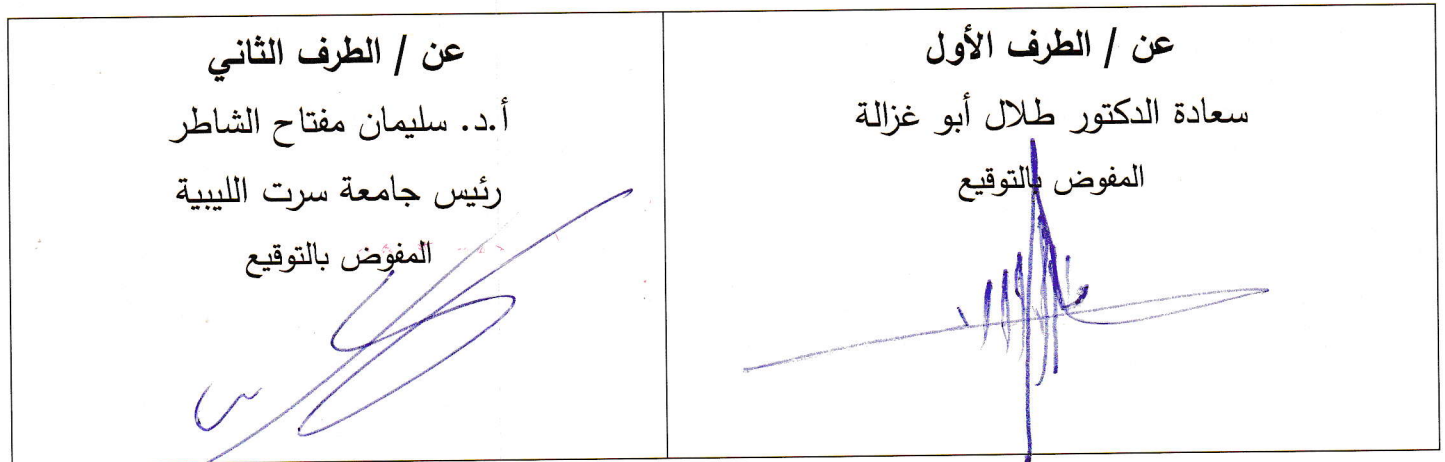 عن / الطرف الأول
سعادة الدكتور طلال أبو غزالة
المفوض بالتوقيع
عن / الطرف الثاني
أ.د. سليمان مفتاح الشاطر
رئيس جامعة سرت الليبية
المفوض بالتوقيع